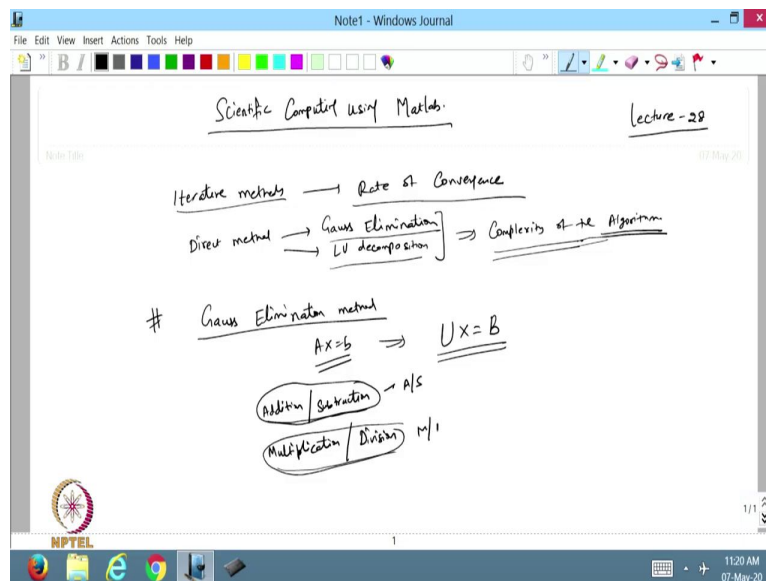 Note1 - Windows Journal
File Edit View Insert Actions Tools Help
Scientific Computing using Matlab.
Lecture-28
Note Title
07-May-20
Iterative methods → Rate of Convergence
Direct method → Gauss Elimination
→ LU decomposition ] ⇒ Complexity of the Algorithm
# Gauss Elimination method
Ax=b ⇒ Ux=B
Addition/Subtraction - A/S
Multiplication/Division M/
NPTEL
1/1
1
11:20 AM
07-May-20